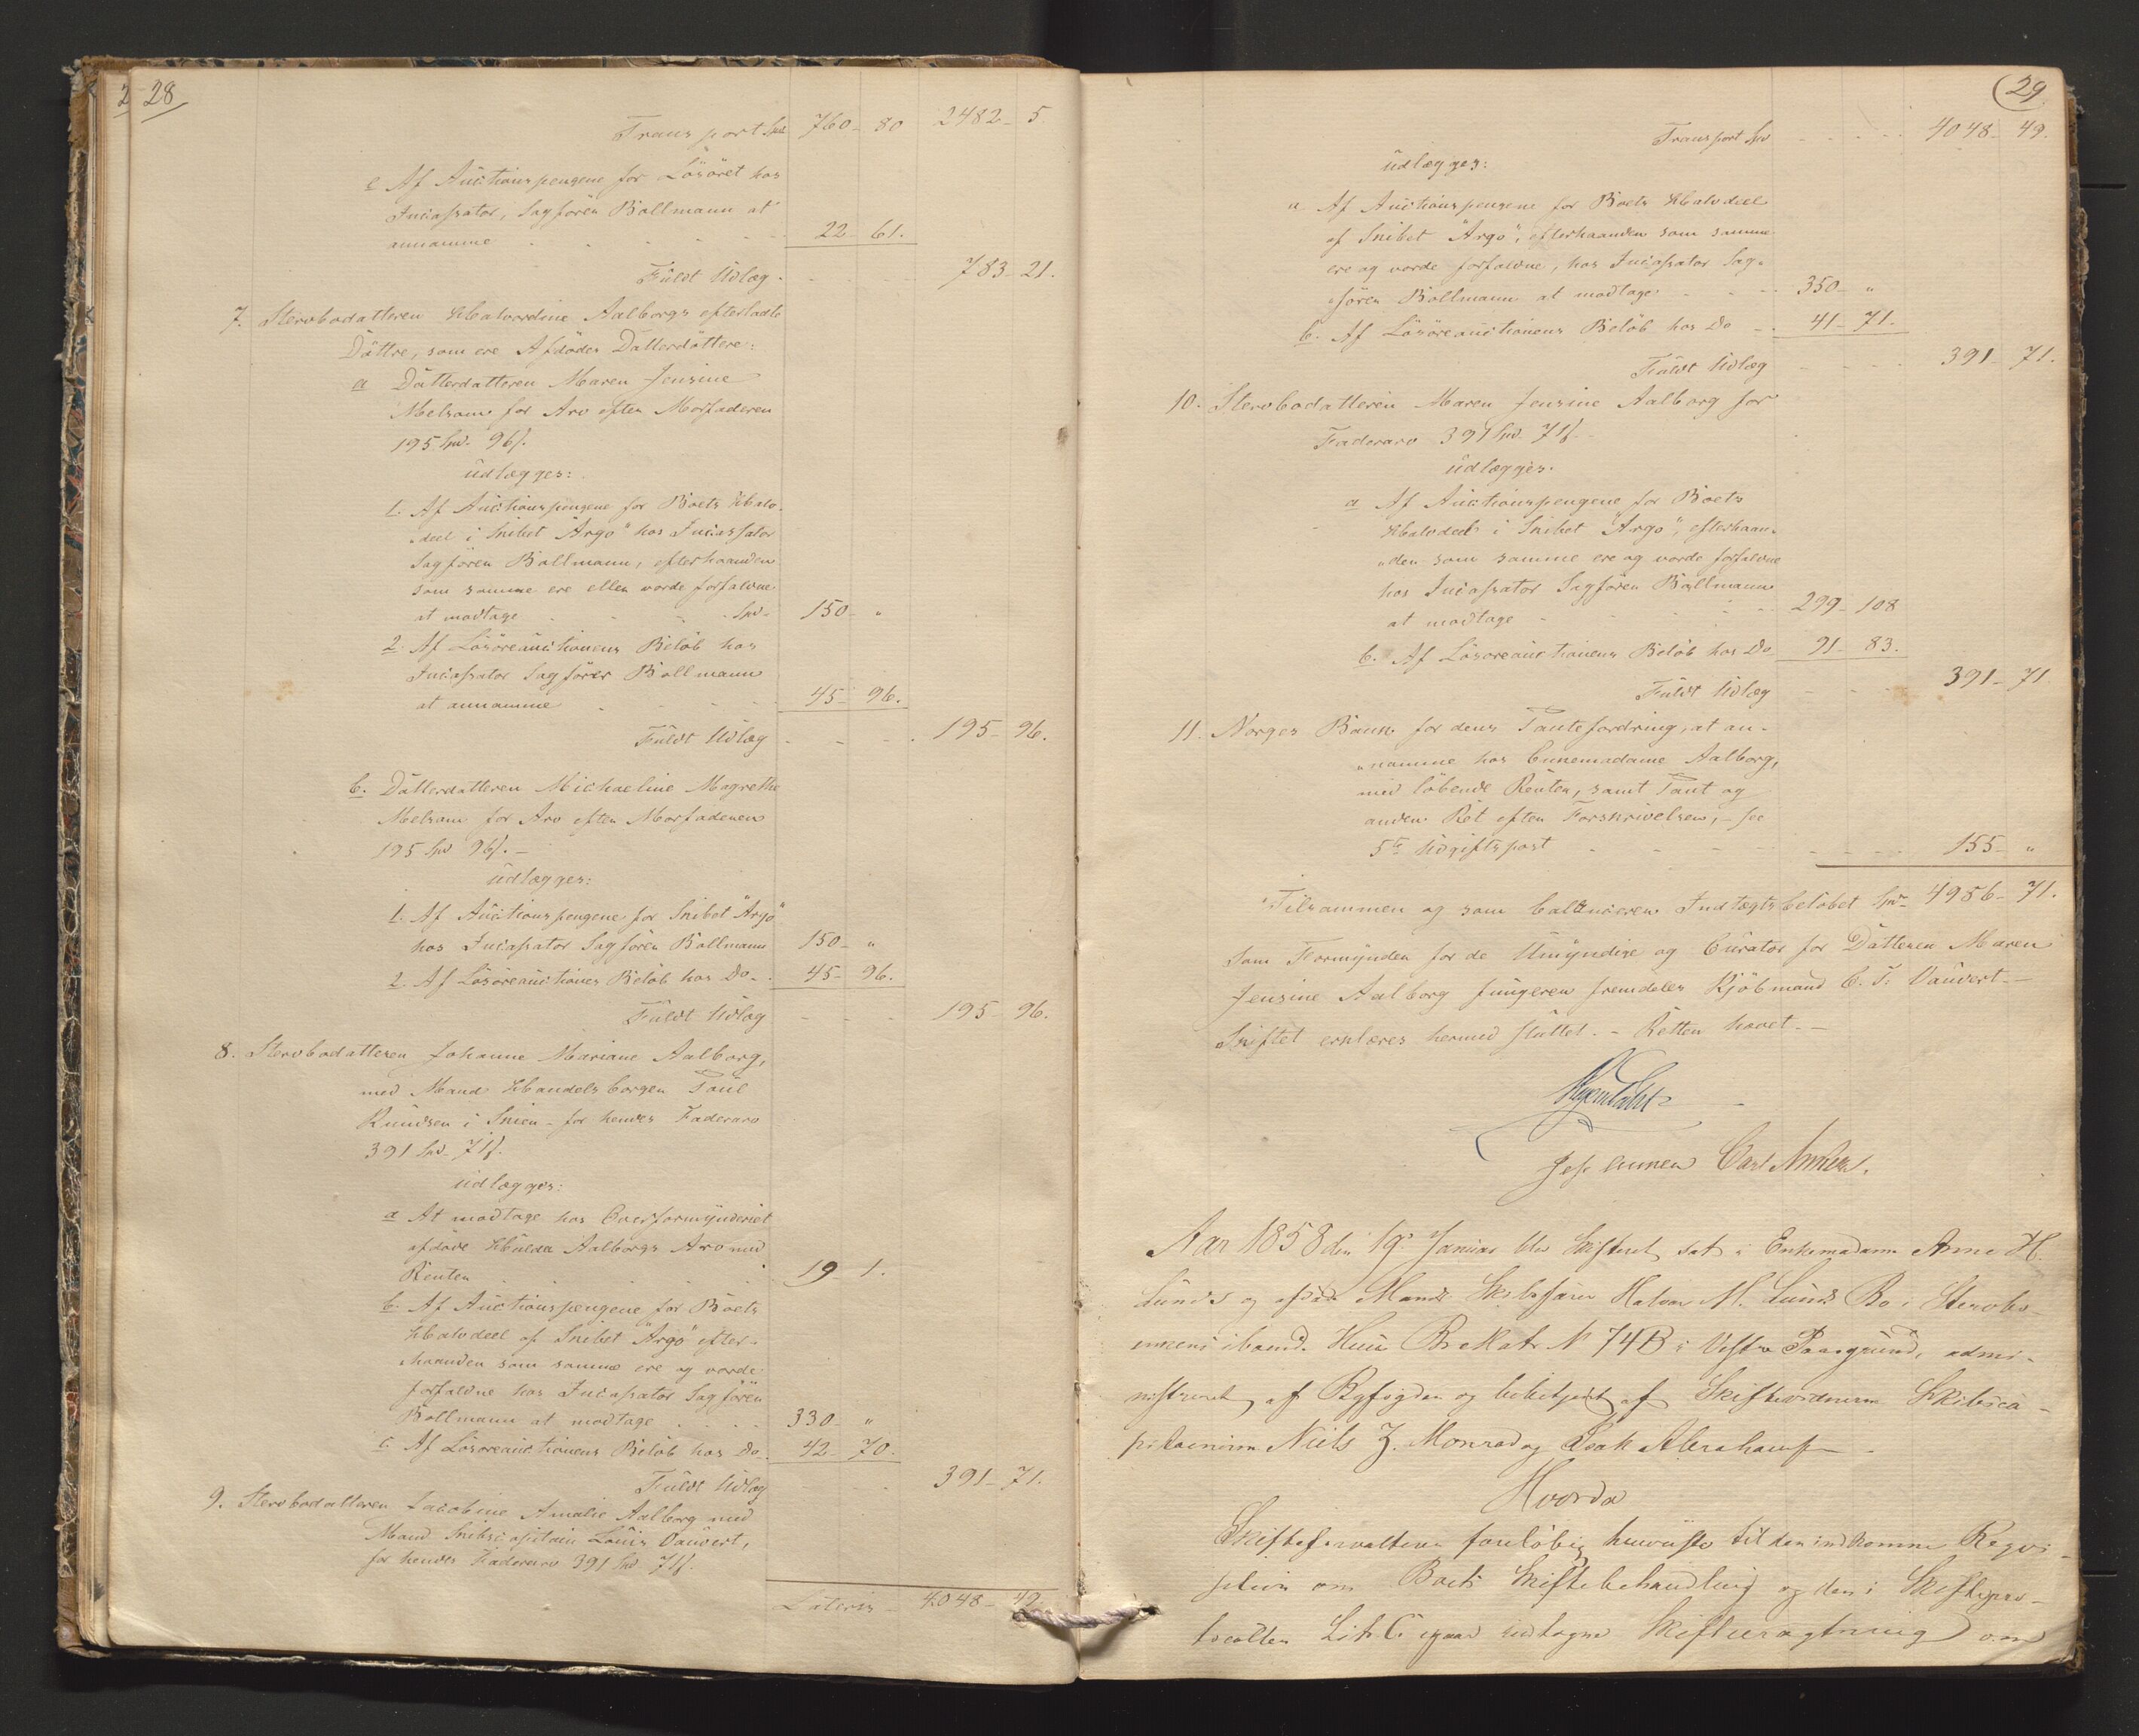 2 28
Transport Spd. 760 - 80 2482 - 5
e Af Auctionspengene for Lösöret hos
Incassator, Sagförer Bollmann at
annamme 22 - 61.
Fuldt Udlæg 783 - 21.
7. Stervbodatteren Halvordine Aalborgs efterladte
Döttre, som ere Afdödes Datterdöttere:
a Datterdatteren Maren Jensine
Melsom for Arv efter Morfaderen
195 Spd. 96 s.
udlægges:
1. Af Auctionspengene for Boets Halv-
deel i Skibet "Argo" hos Incassator
Sagförer Bollmann, efterhaanden
som samme ere eller vorde forfaldne
at modtage Spd. 150 - "
2. Af Lösöreauctionens Belöb hos
Incassator Sagförer Bollmann
at annamme 45 - 96.
Fuldt Udlæg 195 - 96.
b. Datterdatteren Michaeline Magrethe
Melsom for Arv efter Morfaderen
195 Spd 96 s. -
udlægges:
1. Af Auctionspengene for Skibet "Argo"
hos Incassator Sagförer Bollmann 150 - "
2. Af Lösöreauctiones Belöb hos Do 45 - 96.
Fuldt Udlæg 195 - 96.
8. Stervbodatteren Johanne Mariane Aalborg,
med Mand Handelsborger Poul
Knudsen i Skien - for hendes Faderarv
391 Spd. 71 s.
udlægges:
a At modtage hos Overformynderiet
afdöde Hulda Aalborgs Arv med
Renter 19 - 1.
b. Af Auctionspengene for Boets
Halvdeel af Skibet "Argo" efter-
haanden som samme ere og vorde
forfaldne hos Incassator Sagförer
Bollmann at modtage 330 - "
c. Af Lösöreauctionens Belöb hos Do 42 - 70.
Fuldt Udlæg 391 - 71.
9. Stervbodatteren Jacobine Amalie Aalborg med
Mand Skibscapitain Louis Vauvert,
for hendes Faderarv 391 Spd 71 s.
Lateris 4048 - 49
29
Transport Spd 4048 - 49.
udlægges:
a Af Auctionspengene for Boets Halvdeel
af Skibet "Argo", efterhaanden som samme
ere og vorde forfaldne, hos Incassator Sag-
förer Bollmann at modtage 350 - "
b. Af Lösöreauctionens Belöb hos Do 41 - 71.
Fuldt Udlæg 391 - 71.
10. Stervbodatteren Maren Jensine Aalborg for
Faderarv 391 Spd 71 s.
udlægges.
a Af Auctionspengene for Boets
Halvdeel i Skibet "Argo", efterhaan-
den som samme ere og vorde forfaldne
hos Incassator Sagförer Bollmann
at modtage 299 - 108
b. Af Lösöreauctionens Belöb hos Do 91 - 83.
Fuldt Udlæg 391 - 71
11. Norges Bank for dens Pantefordring, at an-
namme hos Enkemadame Aalborg,
med löbende Renter, samt Pant og
anden Ret efter Forskrivelsen, - see
5te Udgiftspost 155 - "
Tilsammen og som balancerer Indtægtsbelöbet Spd 4986 - 71.
Som Formynder for de Umyndige og Curator for Datteren Maren
Jensine Aalborg fungerer fremdeles Kjöbmand C. F. Vauvert. -
Skiftet erklæres hermed sluttet. - Retten hævet. -
Carl
Aar 1858 den 19de Januar blev Skifteret sat i Enkemadame Anne H.
Lunds og afdöde Mands Skibsförer Halvor M. Lunds Bo i Stervbo-
enkens iboend. Huus Br. Matr. N 74B i Vestre Porsgrund, admi-
nistreret af Byfogden og bibetjent af Skiftevidnerne Skibsca-
pitainerne Niels J. Monrad og Isak Abrahamsen
Hvorda
Skifteforvalteren foreløbig henviste til den indkomne Reqvi-
sition om Boets Skiftebehandling og den i Skiftepro-
tocollen Litr. C igaar indtagne Skifteregistrering om